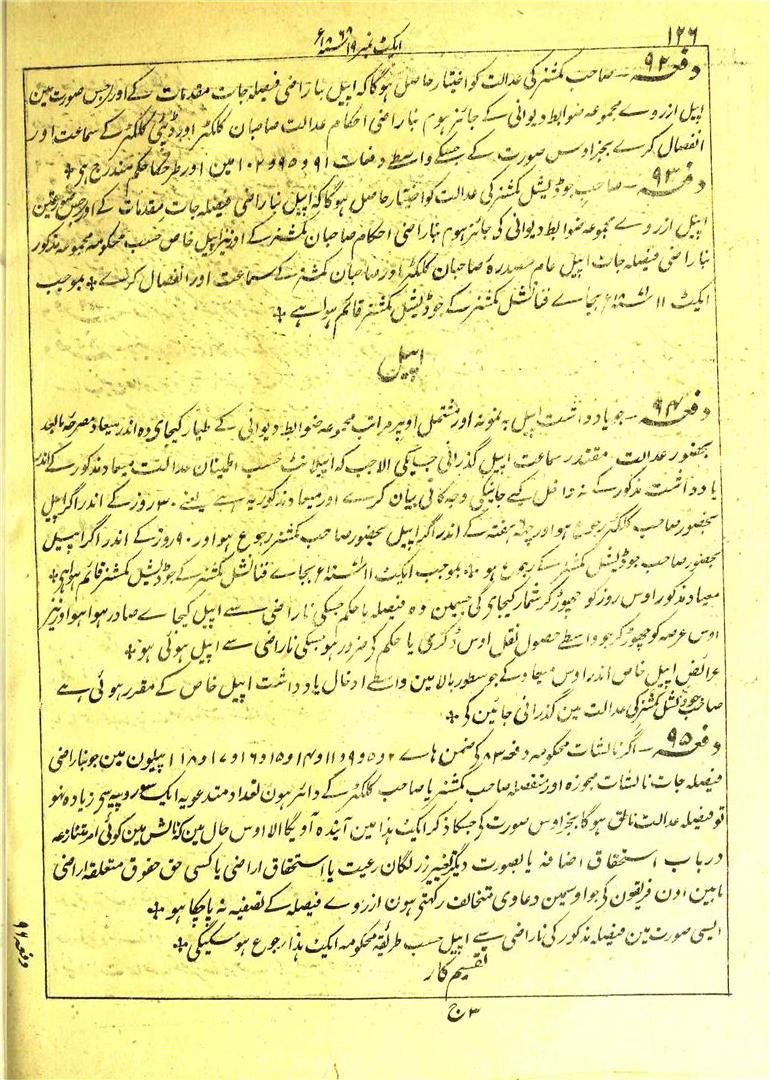 ۱۲۶
ایکٹ نمبر ۱۹ ۱۸۶۸ء
دفعہ ۹۲ - صاحب کمشنر کی عدالت کو اختیار حاصل ہوگا کہ اپیل بناراضی فیصلہ جات مقدمات کے اور جس صورت مین
اپیل ازروے مجموعہ ضوابط دیوانی کے جائز ہو بناراضی احکام عدالت صاحبان کلکٹر اور ڈپٹی کلکٹر کے سماعت اور
انفصال کرے بجز اوس صورت کے جسکے واسطے دفعات ۹۱ و ۹۵ و ۱۰۲ مین اور طرح کا حکم مندرج ہی +
دفعہ ۹۳ - صاحب جوڈیشل کمشنر کی عدالت کو اختیار حاصل ہوگا کہ اپیل بناراضی فیصلہ جات مقدمات کے اور جس صورتمین
اپیل ازروے مجموعہ ضوابط دیوانی کی جائز ہو بناراضی احکام صاحبان کمشنر کے اور نیز اپیل خاص حسب محکومہ مجموعہ مذکور
بناراضی فیصلہ جات اپیل عام مصدرہ صاحبان کلکٹر اور صاحبان کمشنر کے سماعت اور انفصال کرے + بموجب
ایکٹ ۱۱ بجاے فنانشل کمشنر کے جوڈیشل کمشنر قائم ہوا ہے +
اپیل
دفعہ ۹۴ - جو یادداشت اپیل بہ نمونہ اور مشتمل اوپر مراتب مجموعہ ضوابط دیوانی کے طیار کیجاے وہ اندر میعاد مصرحہ بالبعد
بحضور عدالت مقتدر سماعت اپیل گذرانی جایگی الا جب کہ اپیلانٹ حسب اطمینان عدالت میعاد مذکور کے اندر
یادداشت مذکور کے نہ داخل کیے جانیکی وجہ کافی بیان کرے اور میعاد مذکور یہ ہے یعنے ۳۰ روز کے اندر اگر اپیل
بحضور صاحب کلکٹر رجوع ہو اور چھہ ہفتہ کے اندر اگر اپیل بحضور صاحب کمشنر رجوع ہو اور ۹۰ روز کے اندر اگر اپیل
بحضور صاحب جوڈیشل کمشنر کے رجوع ہو + بموجب ایکٹ ۱۱ بجاے فنانشل کمشنر کے جوڈیشل کمشنر قائم ہوا ہی +
میعاد مذکور اوس روز کو چھوڑ کر شمار کیجاے گی جسمین وہ فیصلہ یا حکم جسکی ناراضی سے اپیل کیجاے صادر ہوا ہو اور نیز
اوس عرصہ کو چھوڑ کر جو واسطے حصول نقل اوس ڈگری یا حکم کی ضرور ہو جسکی ناراضی سے اپیل ہوئی ہو +
عرائض اپیل خاص اندر اوس میعاد کے جو سطور بالا مین واسطے ادخال یادداشت اپیل خاص کے مقرر ہوئی ہے
صاحب جوڈیشل کمشنر کی عدالت مین گذرانی جائین گی +
دفعہ ۹۵ - اگر نالشات محکومہ دفعہ ۸۳ کی ضمن ہاے ۲ و ۵ و ۹ و ۱۱ و ۱۴ و ۱۵ و ۱۶ و ۱۷ و ۱۸ اپیلون مین جو بناراضی
فیصلہ جات نالشات مجوزہ اور منفصلہ صاحب کمشنر یا صاحب کلکٹر کے دائر ہون تعداد متدعویہ ایک سو روپیہ سی زیادہ نہو
تو فیصلہ عدالت ناطق ہوگا بجز اوس صورت کی جسکا ذکر ایکٹ ہذا مین آیندہ آویگا الا اوس حال مین کہ نالش مین کوئی امر متنازعہ
درباب استحقاق اضافہ یا بصورت دیگر تغییر زر لگان رعیت یا استحقاق اراضی یا کسی حق حقوق متعلقہ اراضی
مابین اون فریقون کی جو اوسمین دعاوی متخالف رکھتی ہون ازروے فیصلہ کے تصفیہ نہ پاچکا ہو +
ایسی صورت مین فیصلہ مذکور کی ناراضی سے اپیل حسب طریقہ محکومہ ایکٹ ہذا رجوع ہو سکیگی +
تقسیم کار
دفعہ ۹۶
۳ ج